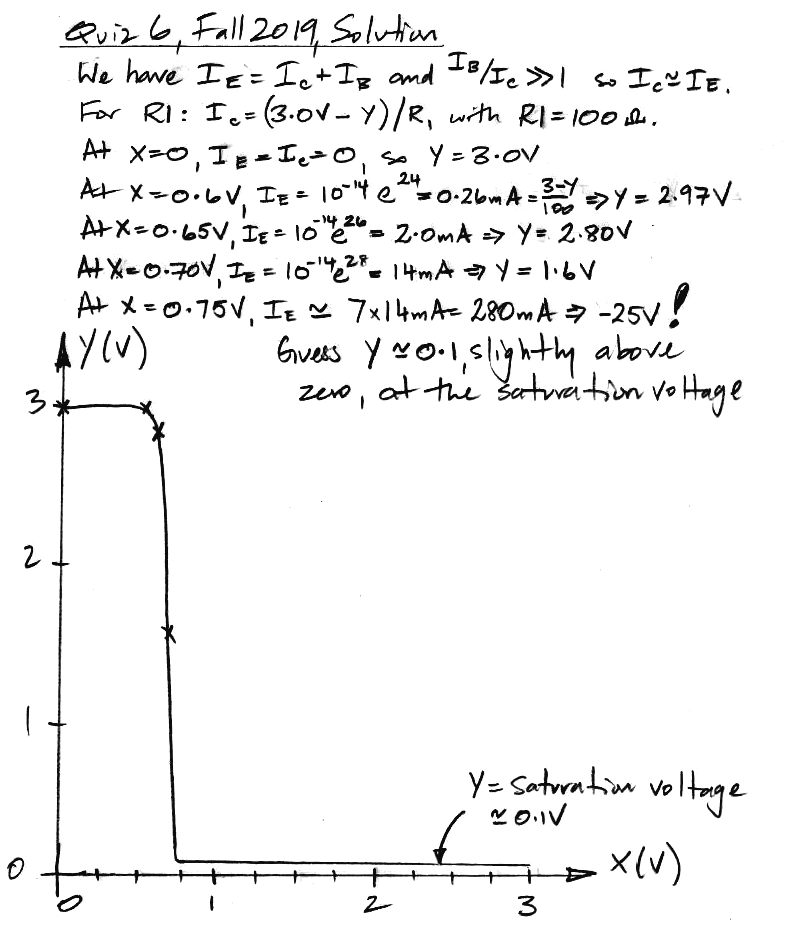 Quiz 6, Fall 2019, Solution
We have I_E = I_C + I_B and I_B/I_C ≫ 1 so I_C ≃ I_E.
For R1: I_C = (3.0V - Y)/R, with R1 = 100 Ω.
At X=0, I_E = I_C = 0, so Y = 3.0V
At X=0.6V, I_E = 10^-14 e^24 = 0.26mA = (3-Y)/100 ⇒ Y = 2.97V
At X=0.65V, I_E = 10^-14 e^26 = 2.0mA ⇒ Y = 2.80V
At X=0.70V, I_E = 10^-14 e^28 = 14mA ⇒ Y = 1.6V
At X=0.75V, I_E ≃ 7×14mA = 280mA ⇒ -25V!
Y(V)
Guess Y ≃ 0.1, slightly above
zero, at the saturation voltage
3
2
1
Y = saturation voltage
≃ 0.1V
0
X(V)
0 1 2 3